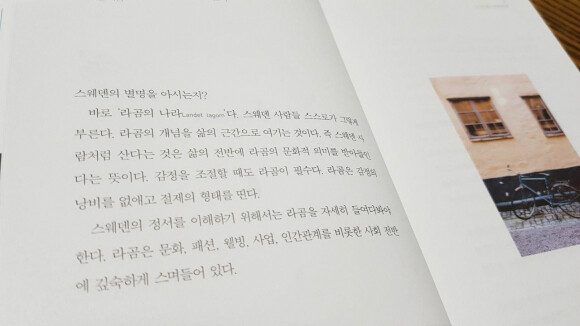 스웨덴의 별명을 아시는지?
바로 '라곰의 나라Landet lagom'다. 스웨덴 사람들 스스로가 그렇게
부른다. 라곰의 개념을 삶의 근간으로 여기는 것이다. 즉 스웨덴 사
람처럼 산다는 것은 삶의 전반에 라곰의 문화적 의미를 받아들인
다는 뜻이다. 감정을 조절할 때도 라곰이 필수다. 라곰은 감정의
낭비를 없애고 절제의 형태를 띤다.
스웨덴의 정서를 이해하기 위해서는 라곰을 자세히 들여다봐야
한다. 라곰은 문화, 패션, 웰빙, 사업, 인간관계를 비롯한 사회 전반
에 깊숙하게 스며들어 있다.